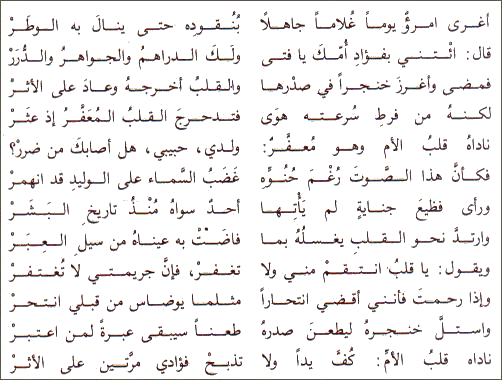 أغرى امرؤٌ يوماً غُلاماً جاهلاً بُنُقوده حتى ينالَ به الوطَرْ
قال: ائْتني بفؤادِ أُمّكَ يا فتى ولَكَ الدراهمُ والجواهرُ والدُّرَرْ
فمضى وأغرزَ خنجراً في صدْرها والقلبُ أخرجهُ وعادَ على الأثرْ
لكنهُ من فرطِ سُرعتهِ هوَى فتدحرجَ القلبُ المُعَفَّرُ إذ عثَرْ
ناداهُ قلبُ الأمِ وهو مُعفَّرٌ: ولدي، حبيبي، هل أصابكَ من ضررْ؟
فكأنَّ هذا الصَّوتَ رُغْمَ حُنُوِّهِ غَضَبُ السَّماء على الوليدِ قد انهمرْ
ورأى فظيعَ جنايةٍ لم يَأْتِها أحدٌ سواهُ مُنْذُ تاريخِ البَشَرْ
وارتدَّ نحو القلبِ يغسلُهُ بما فاضَتْ به عيناهُ من سيلِ العِبَرْ
ويقول: يا قلبُ انتقمْ مني ولا تغفرْ، فإنَّ جريمتي لا تُغتفرْ
وإذا رحمتَ فأنني أقضي انتحاراً مثلما يوضاس من قبلي انتحرْ
واستلَّ خنجرهُ ليطعنَ صدرهُ طعناً سيبقى عبرةً لمن اعتبرْ
ناداه قلبُ الأمِّ: كُفَّ يداً ولا تذبحْ فؤادي مرَّتين على الأثرْ